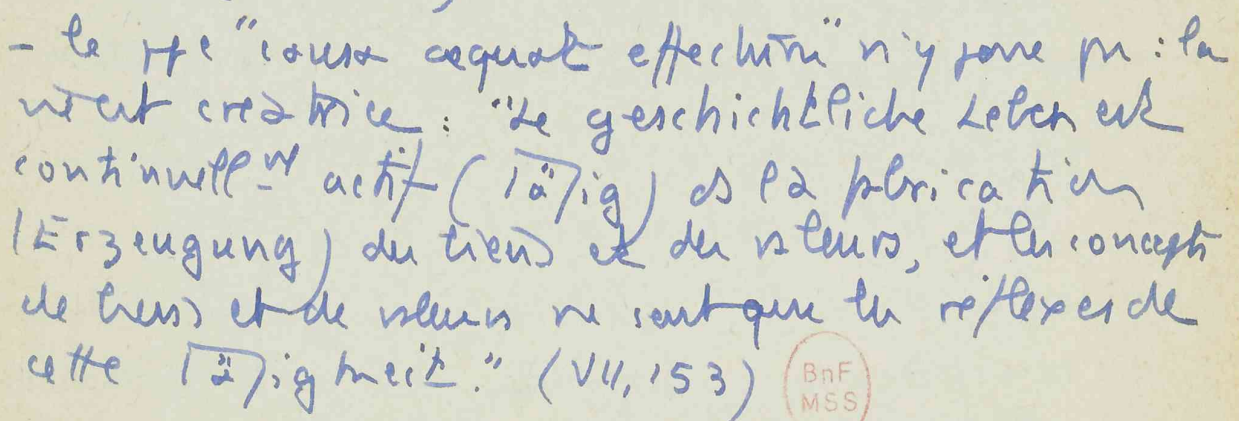 - le ppe "causa aequat effectum" n'y joue pas : la
vie est créatrice : "Le geschichtliche Leben est
continuellt actif (Tätig) ds la fabrication
(Erzeugung) des biens et des valeurs, et les concepts
de biens et de valeurs ne sont que les réflexes de
cette Tätigkeit." (VII, 153)
BnF
MSS